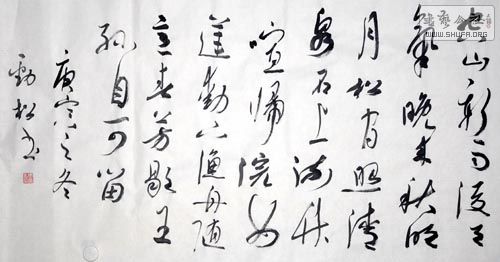 空山新雨後天
氣晚来秋明
月松間照清
泉石上流竹
喧歸浣女
蓮動下漁舟隨
意春芳歇王
孫自可留
庚寅之冬
勁松书
WWW.SHUFA.ORG